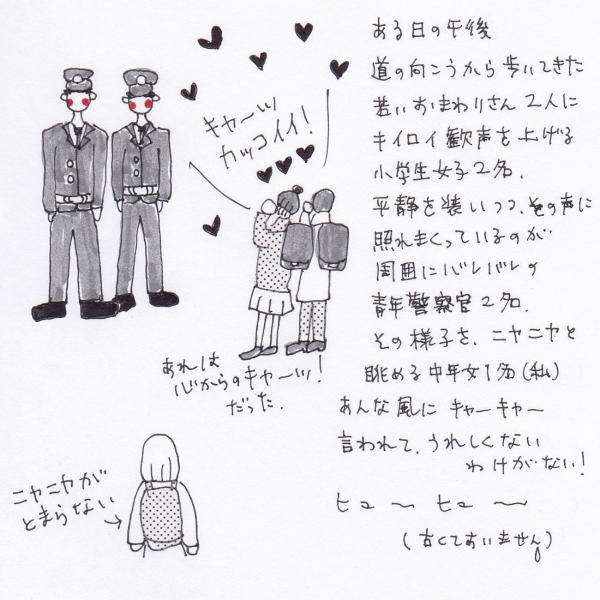 ある日の午後
道の向こうから歩いてきた
若いおまわりさん2人に
キイロイ歓声を上げる
小学生女子2名.
平静を装いつつ、その声に
照れまくっているのが
周囲にバレバレの
青年警察官2名.
その様子を、ニヤニヤと
眺める中年女1名(私)
あんな風にキャーキャー
言われて、うれしくない
わけがない!
ヒュ〜ヒュ〜
(古くてすいません)
キャーッ
カッコイイ!
あれは
心からのキャーッ!
だった.
ニヤニヤが
とまらない